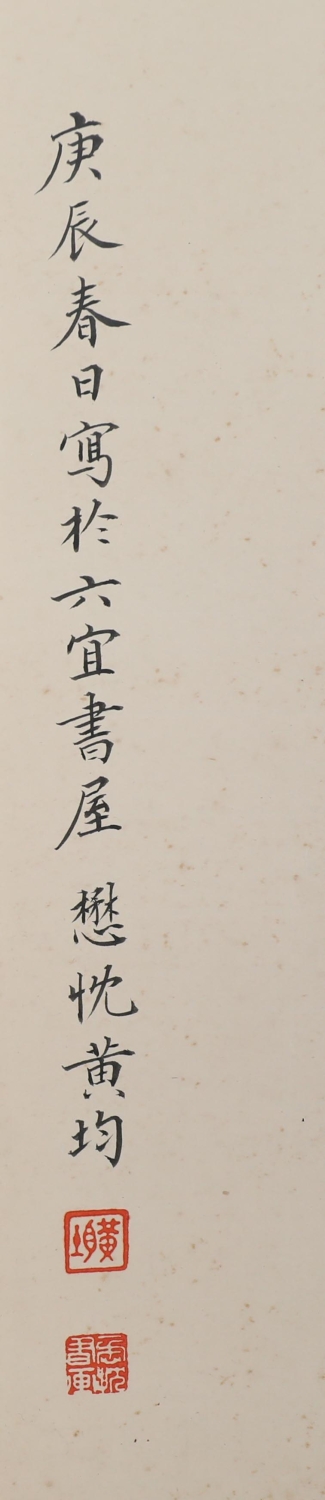 庚辰春日寫於六宜書屋 懋忱黃均
黃均